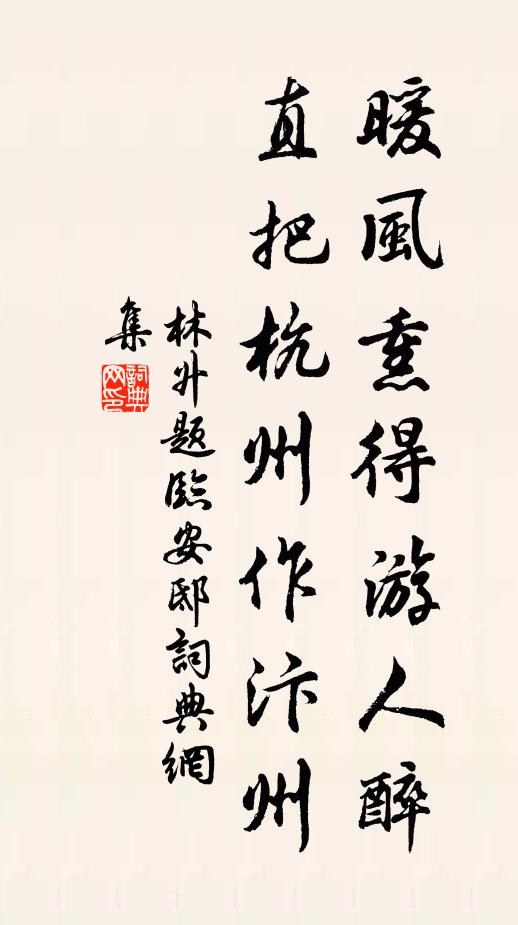 暖風熏得游人醉
直把杭州作汴州
林外題臨安邸詞典網
集
詞典網印